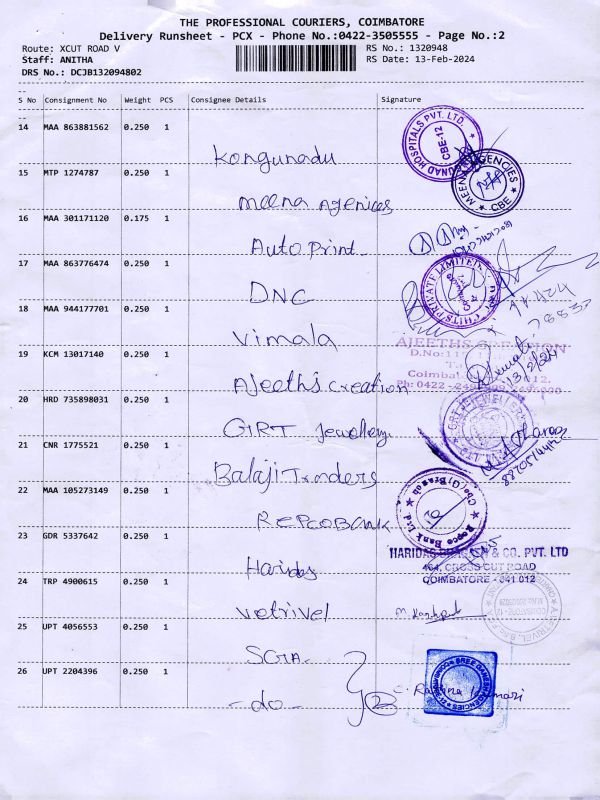 THE PROFESSIONAL COURIERS, COIMBATORE
Delivery Runsheet - PCX - Phone No.:0422-3505555 - Page No.:2
Route: XCUT ROAD V
RS No.: 1320948
Staff: ANITHA
RS Date: 13-Feb-2024
DRS No.: DCJB132094802
S No Consignment No Weight PCS Consignee Details Signature
14 MAA 863881562 0.250 1
Kongunadu
15 MTP 1274787 0.250 1
Meena Agenices
16 MAA 301171120 0.175 1
Auto Print
17 MAA 863776474 0.250 1
DNC
18 MAA 944177701 0.250 1
Vimala
19 KCM 13017140 0.250 1
Ajeeths Creation
20 HRD 735898031 0.250 1
GRT Jewellery
21 CNR 1775521 0.250 1
Balaji Traders
22 MAA 105273149 0.250 1
REPCOBANK
23 GDR 5337642 0.250 1
Haridas
24 TRP 4900615 0.250 1
Vetrivel
25 UPT 4056553 0.250 1
SGA
26 UPT 2204396 0.250 1
-do-
2
HOSPITALS PVT. LTD.
CBE-12
MEENA AGENCIES
CBE
CHITS PRIVATE LIMITED
AJEETHS CREATION
D.No:11
Coimbat 012.
Ph: 0422
13/2/24
Repco Bank Ltd.
HARIDAS & CO. PVT. LTD
464, CROSS CUT ROAD
COIMBATORE - 641 012